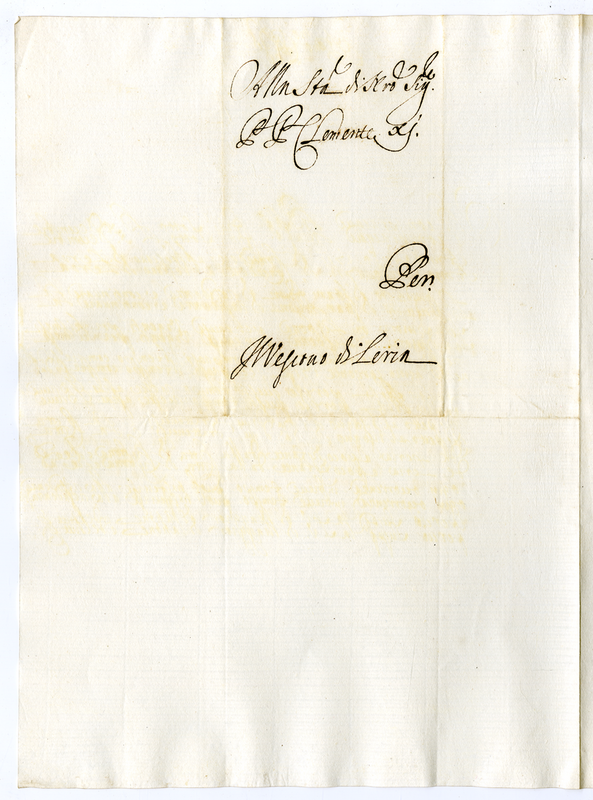 Alla Stà di Nrō Sigre
PP Clemente XJ.
Per
Il Vescouo di Leria